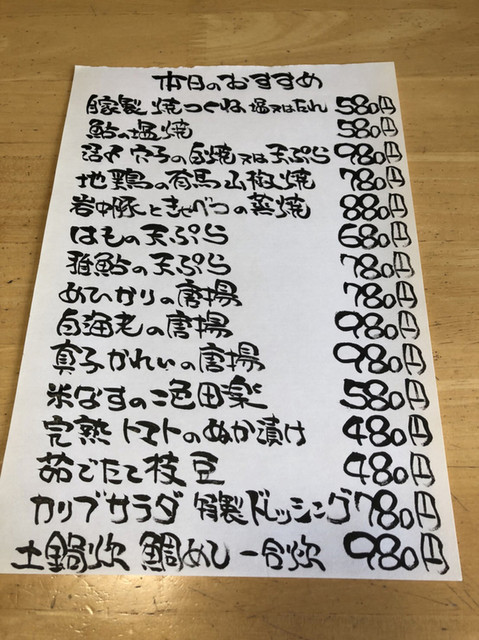 本日のおすすめ
自家製 焼つくね 塩又はたれ 580円
鮎の塩焼 580円
活〆穴子の白焼又は天ぷら 980円
地鶏の有馬山椒焼 780円
岩中豚ときゃべつの蒸焼 880円
はもの天ぷら 680円
稚鮎の天ぷら 780円
めひかりの唐揚 780円
白海老の唐揚 980円
真子かれいの唐揚 980円
米なすの二色田楽 580円
完熟トマトのぬか漬け 480円
茹でたて枝豆 480円
カリブサラダ 特製ドレッシング 780円
土鍋炊 鯛めし 一合炊 980円